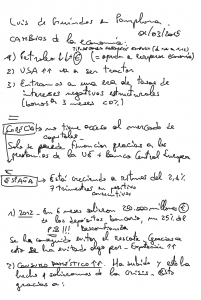 Luis de Guindos en Pamplona.
02/03/2015
CAMBIOS de la economía:
1) Petróleo ↓↓ € (= ayuda a recuperar economía)
2) USA ↑↑ va a ser tractor
3) Entramos a una era de tasas de
intereses negativos estructurales
(bonos a 3 meses <0%)
GRECIA no tiene acceso al mercado de
capitales.
Solo se puede financiar gracias a los
préstamos de la UE + Banco Central Europeo
ESPAÑA → Está creciendo a ritmos del 2,4%
7 trimestres en positivo
consecutivos
1) 2012 - En 6 meses salieron 200.000 millones €
de los depósitos bancarios, un 25% del
PIB!!!
Se ha conseguido evitar el rescate. Gracias a
esto se ha evitado algo peor. Explosión ↑↑
2) Consumo DOMÉSTICO ↑↑. Ha subido y ella ha
hecho q saliéramos de la crisis. Esto
gracias a: